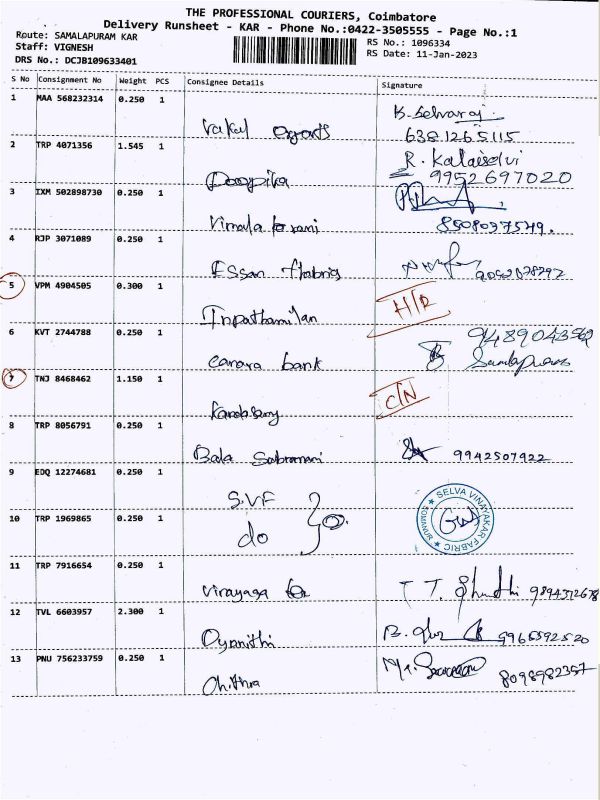 THE PROFESSIONAL COURIERS, Coimbatore
Delivery Runsheet - KAR - Phone No:0422-3505555 - Page No.:1
Route: SAMALAPURAM KAR
RS No.: 1096334
Staff: VIGNESH
RS Date: 11-Jan-2023
DRS No.: DCJB109633401
S No Consignment No Weight PCS Consignee Details Signature
1 MAA 568232314 0.250 1
K. Selvaraj
638 1265115
2 TRP 4071356 1.545 1
R. Kalaiselvi
Deepika 9952697020
3 IXM 502898730 0.250 1
Vimala rani 8508037549.
4 RJP 3071089 0.250 1
Essan
5 VPM 4904505 0.300 1
H/R
6 KVT 2744788 0.250 1
canara bank
7 TNJ 8468462 1.150 1
C/N
8 TRP 8056791 0.250 1
Bala 9942507922
9 EDQ 12274681 0.250 1
S.V.F
SELVA VINAYAKAR FABRIC
SOMANUR
10 TRP 1969865 0.250 1
do
11 TRP 7916654 0.250 1
12 TVL 6603957 2.300 1
9965592520
13 PNU 756233759 0.250 1
Chithra 8098982357